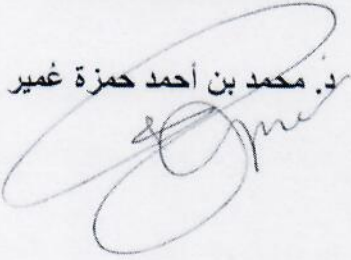 د. محمد بن أحمد حمزة غمير